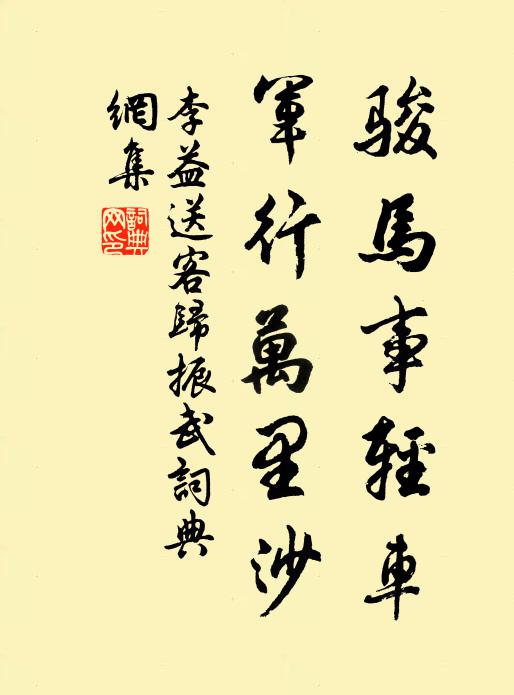 骏馬事輕車
軍行萬里沙
李益送客歸振武詞典
網集
詞典
网印